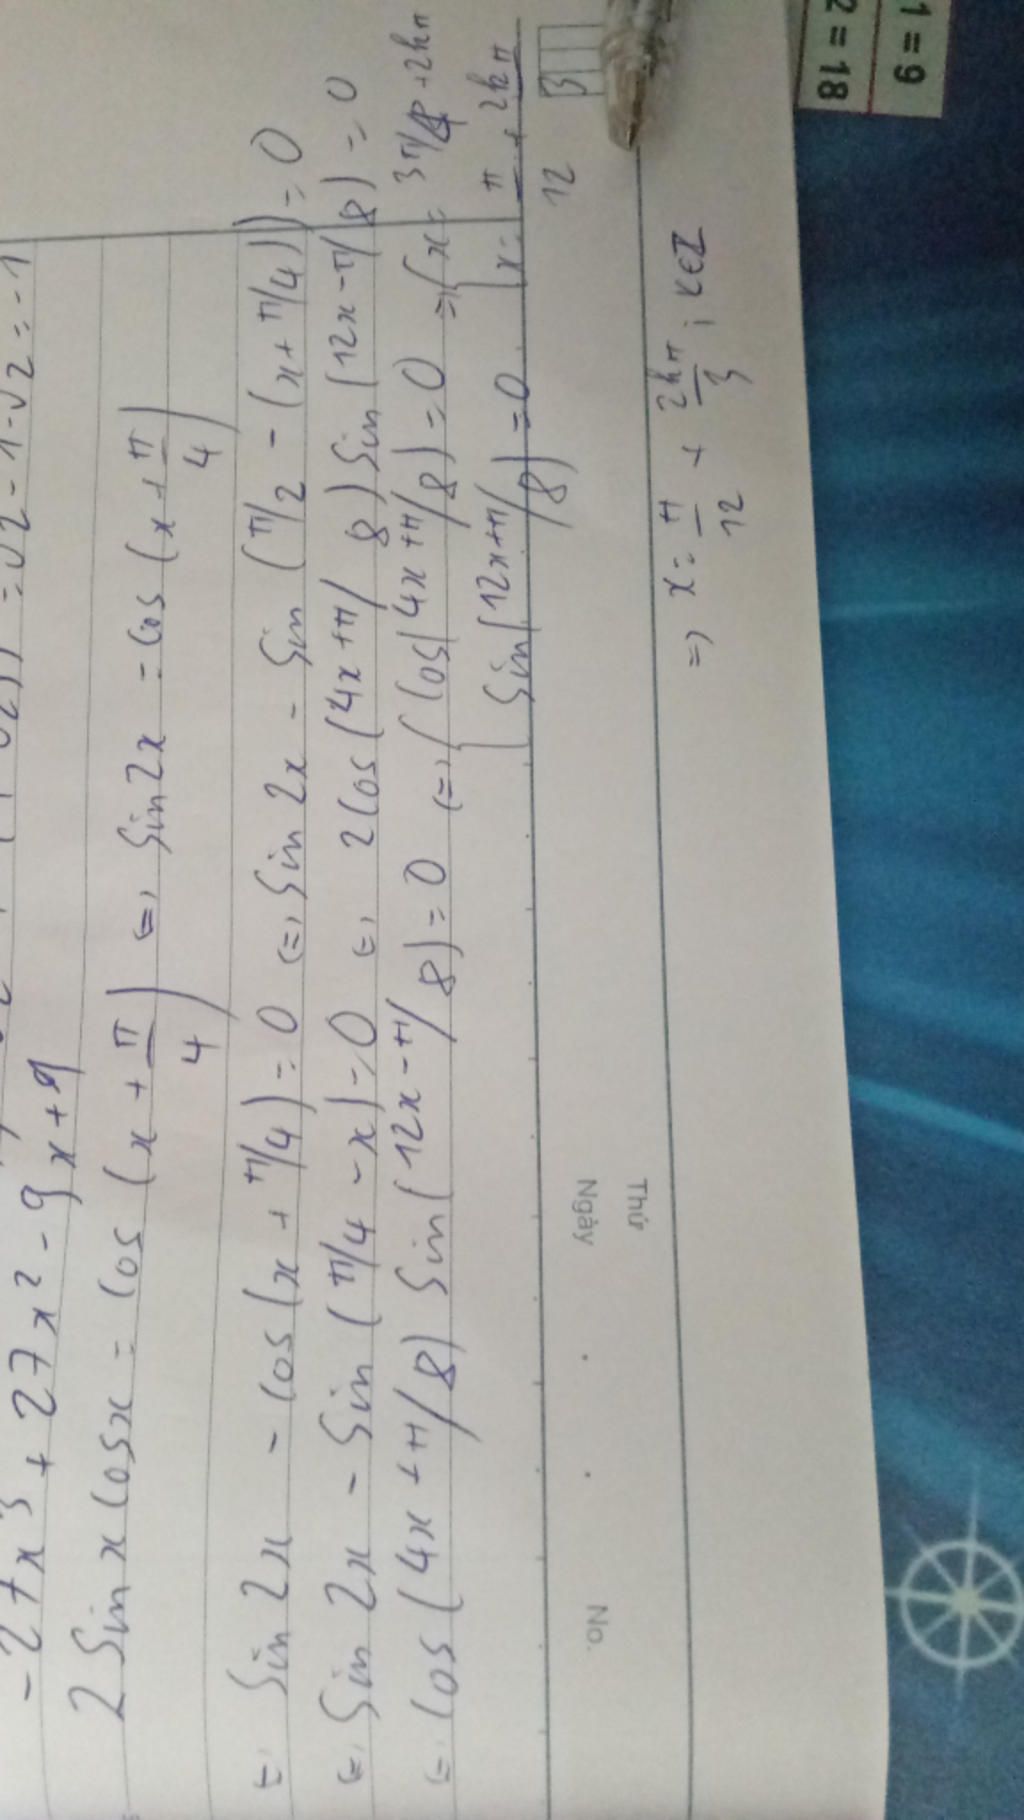 -27x³ + 27x² - 9x + 9
2 Sin x cosx = cos (x + π/4) (=) Sin 2x = cos (x + π/4)
(=) Sin 2x - cos (x + π/4) = 0 (=) Sin 2x - Sin (π/2 - (x + π/4)) = 0
(=) Sin 2x - Sin (π/4 - x) = 0 (=) 2 cos (4x + π/8) Sin (12x - π/8) = 0
(=) cos (4x + π/8) Sin (12x - π/8) = 0 (=) cos (4x + π/8) = 0 (=) x = 3π/4 + 2kπ
Sin (12x + π/8) = 0 x = π/12 + 2kπ/3
=) x = π/12 + 2kπ/3 ; k∈Z
Thứ
Ngày
No.
1 = 9
2 = 18